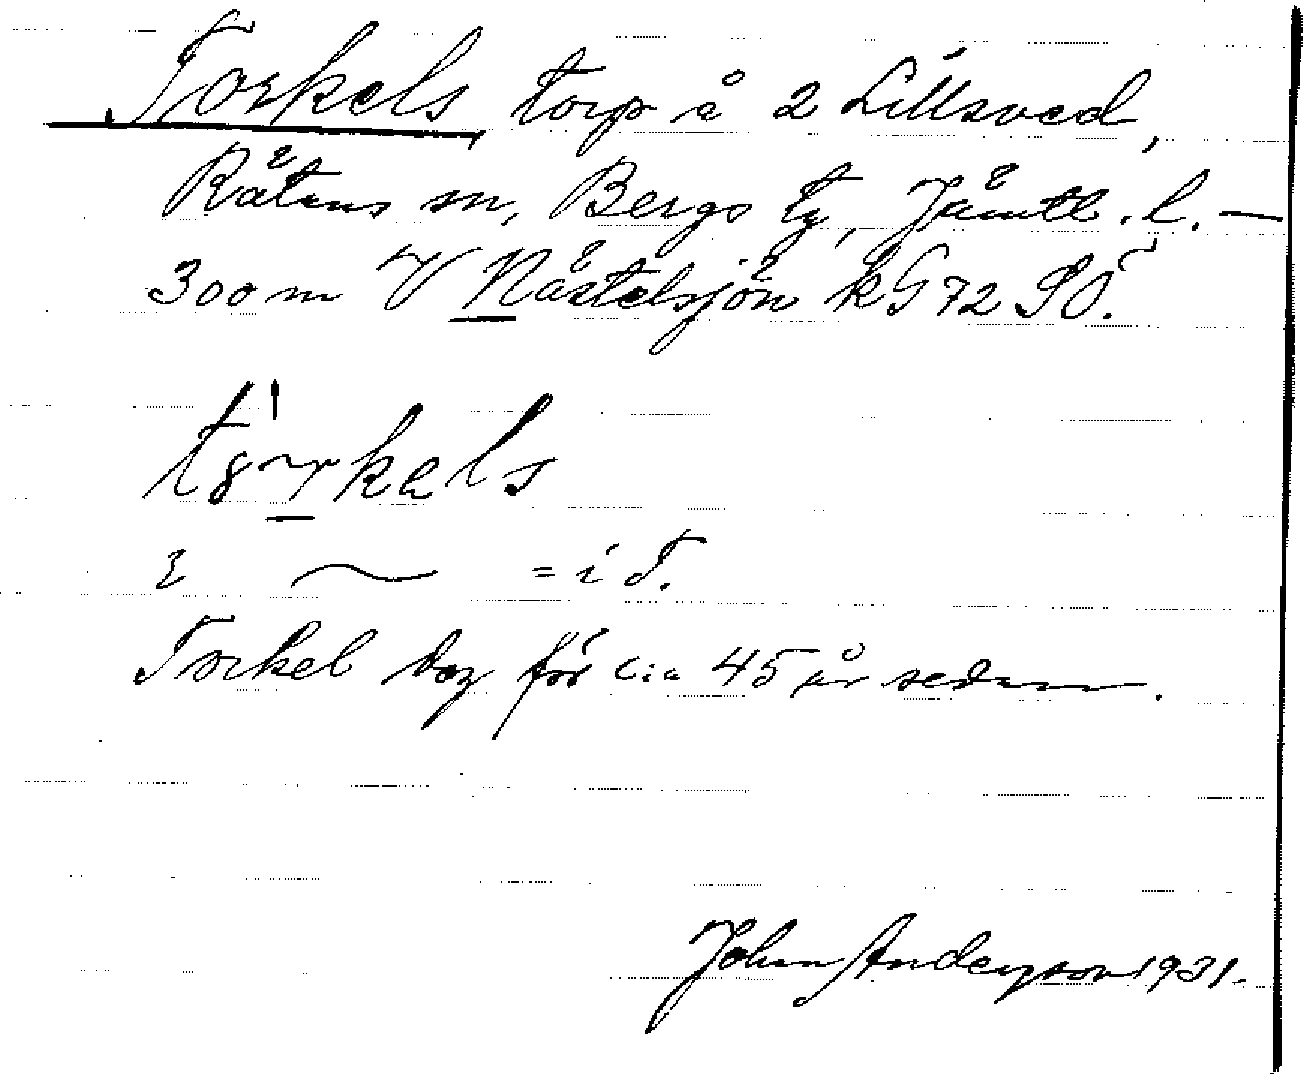 Torkels, torp å 2 Lillsved,
Rätans sn, Bergs tg, Jämtl. l. —
300 m V Nästelsjön kG 72 SÖ.
i ~ = i T.
Torkel dog för c:a 45 år sedan.
John Anderson 1931.